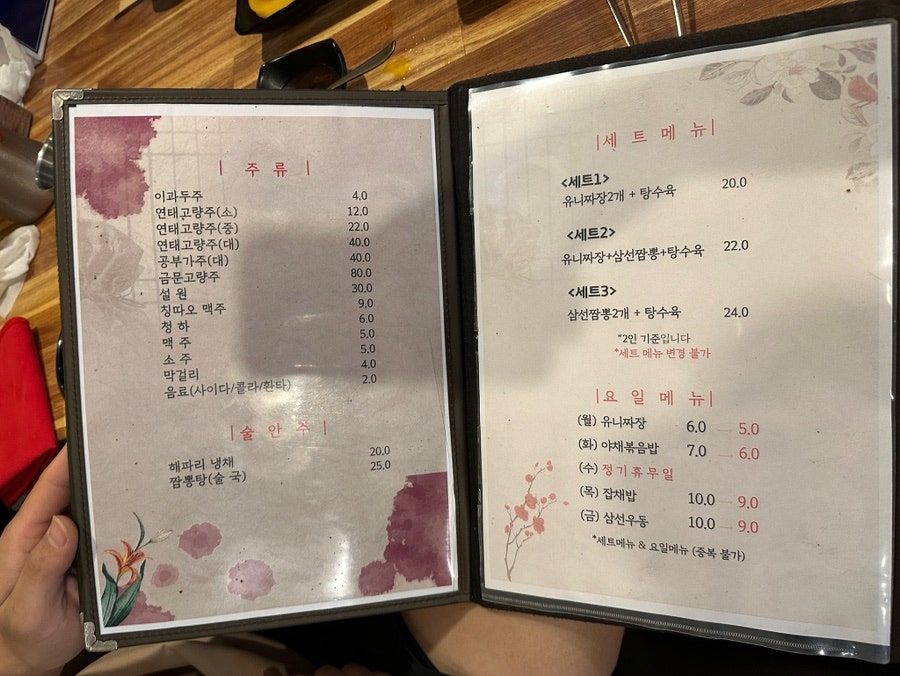 |주 류|
이과두주 4.0
연태고량주(소) 12.0
연태고량주(중) 22.0
연태고량주(대) 40.0
공부가주(대) 40.0
금문고량주 80.0
설 원 30.0
칭따오 맥주 9.0
청 하 6.0
맥 주 5.0
소 주 5.0
막걸리 4.0
음료(사이다/콜라/환타) 2.0
|술 안 주|
해파리 냉채 20.0
짬뽕탕(술 국) 25.0
|세 트 메 뉴|
<세트1>
유니짜장2개 + 탕수육 20.0
<세트2>
유니짜장+삼선짬뽕+탕수육 22.0
<세트3>
삼선짬뽕2개 + 탕수육 24.0
*2인 기준입니다
*세트 메뉴 변경 불가
|요 일 메 뉴|
(월) 유니짜장 6.0 → 5.0
(화) 야채볶음밥 7.0 → 6.0
(수) 정기휴무일
(목) 잡채밥 10.0 → 9.0
(금) 삼선우동 10.0 → 9.0
*세트메뉴 & 요일메뉴 (중복 불가)